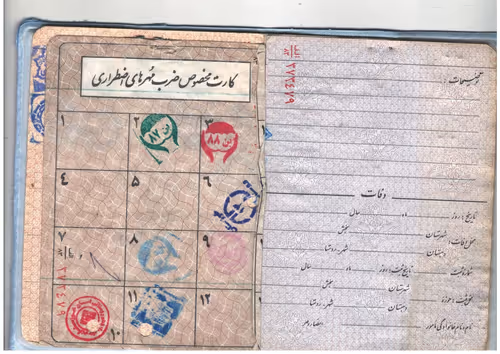 کارت مخصوص ضرب مهرهای اضطراری
۱
۲
۳
۸۷
۸۸
۴
۵
۶
۷
۸
۹
۱۰
۱۱
۱۲
توضیحات
وفات
تاریخ: روز ماه سال
محل وفات: شهرستان بخش
دهستان شهر - روستا
شماره ثبت تاریخ ثبت: روز ماه سال
محل ثبت: حوزه شهرستان بخش
دهستان شهر - روستا
نام و نام خانوادگی مأمور امضاء و مهر